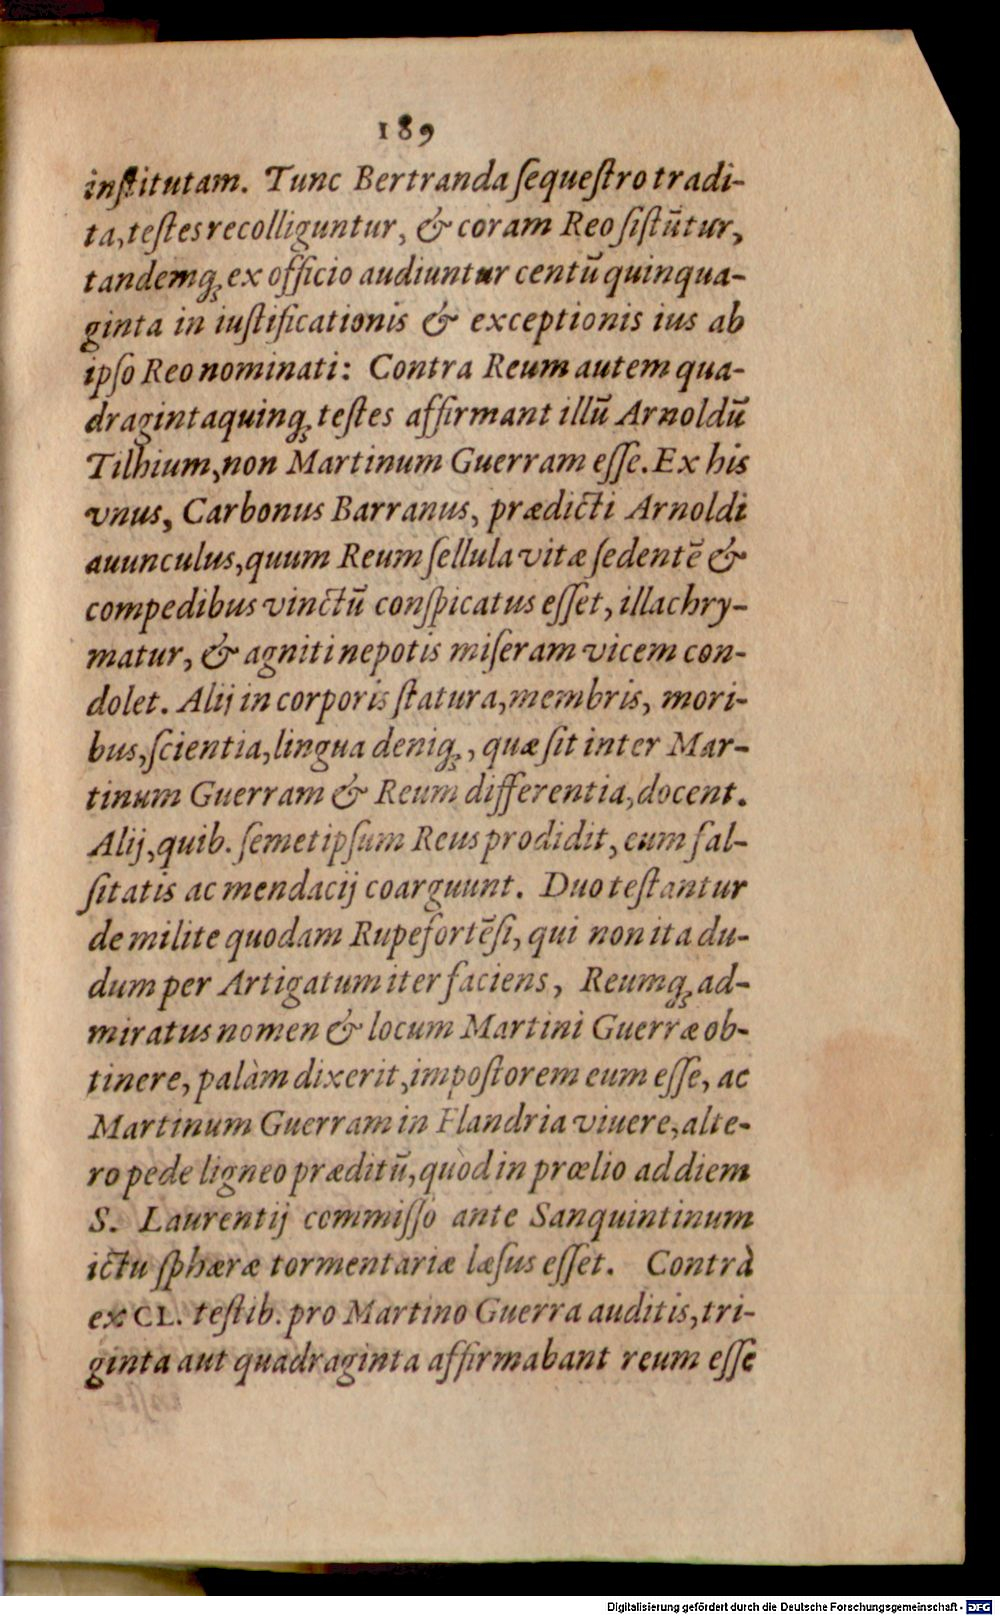 189
inſtitutam. Tunc Bertranda ſequeſtro tradi-
ta, teſtes recolliguntur, & coram Reo ſiſtūtur,
tandemq́; ex officio audiuntur centū quinqua-
ginta in iuſtificationis & exceptionis ius ab
ipſo Reo nominati: Contra Reum autem qua-
dragintaquinq́; teſtes affirmant illū Arnoldū
Tilhium, non Martinum Guerram eſſe. Ex his
vnus, Carbonus Barranus, prædicti Arnoldi
auunculus, quum Reum ſellula vitæ ſedentē &
compedibus vinctū conſpicatus eſſet, illachry-
matur, & agniti nepotis miſeram vicem con-
dolet. Alij in corporis ſtatura, membris, mori-
bus, ſcientia, lingua deniq́;, quæ ſit inter Mar-
tinum Guerram & Reum differentia, docent.
Alij, quib. ſemetipſum Reus prodidit, eum fal-
ſitatis ac mendacij coarguunt. Duo teſtantur
de milite quodam Rupefortēſi, qui non ita du-
dum per Artigatum iter faciens, Reumq́; ad-
miratus nomen & locum Martini Guerræ ob-
tinere, palàm dixerit, impoſtorem eum eſſe, ac
Martinum Guerram in Flandria viuere, alte-
ro pede ligneo præditū, quòd in prœlio ad diem
S. Laurentij commiſſo ante Sanquintinum
ictu ſphæræ tormentariæ læſus eſſet. Contrà
ex CL. teſtib. pro Martino Guerra auditis, tri-
ginta aut quadraginta affirmabant reum eſſe
Digitalisierung gefördert durch die Deutsche Forschungsgemeinschaft - DFG